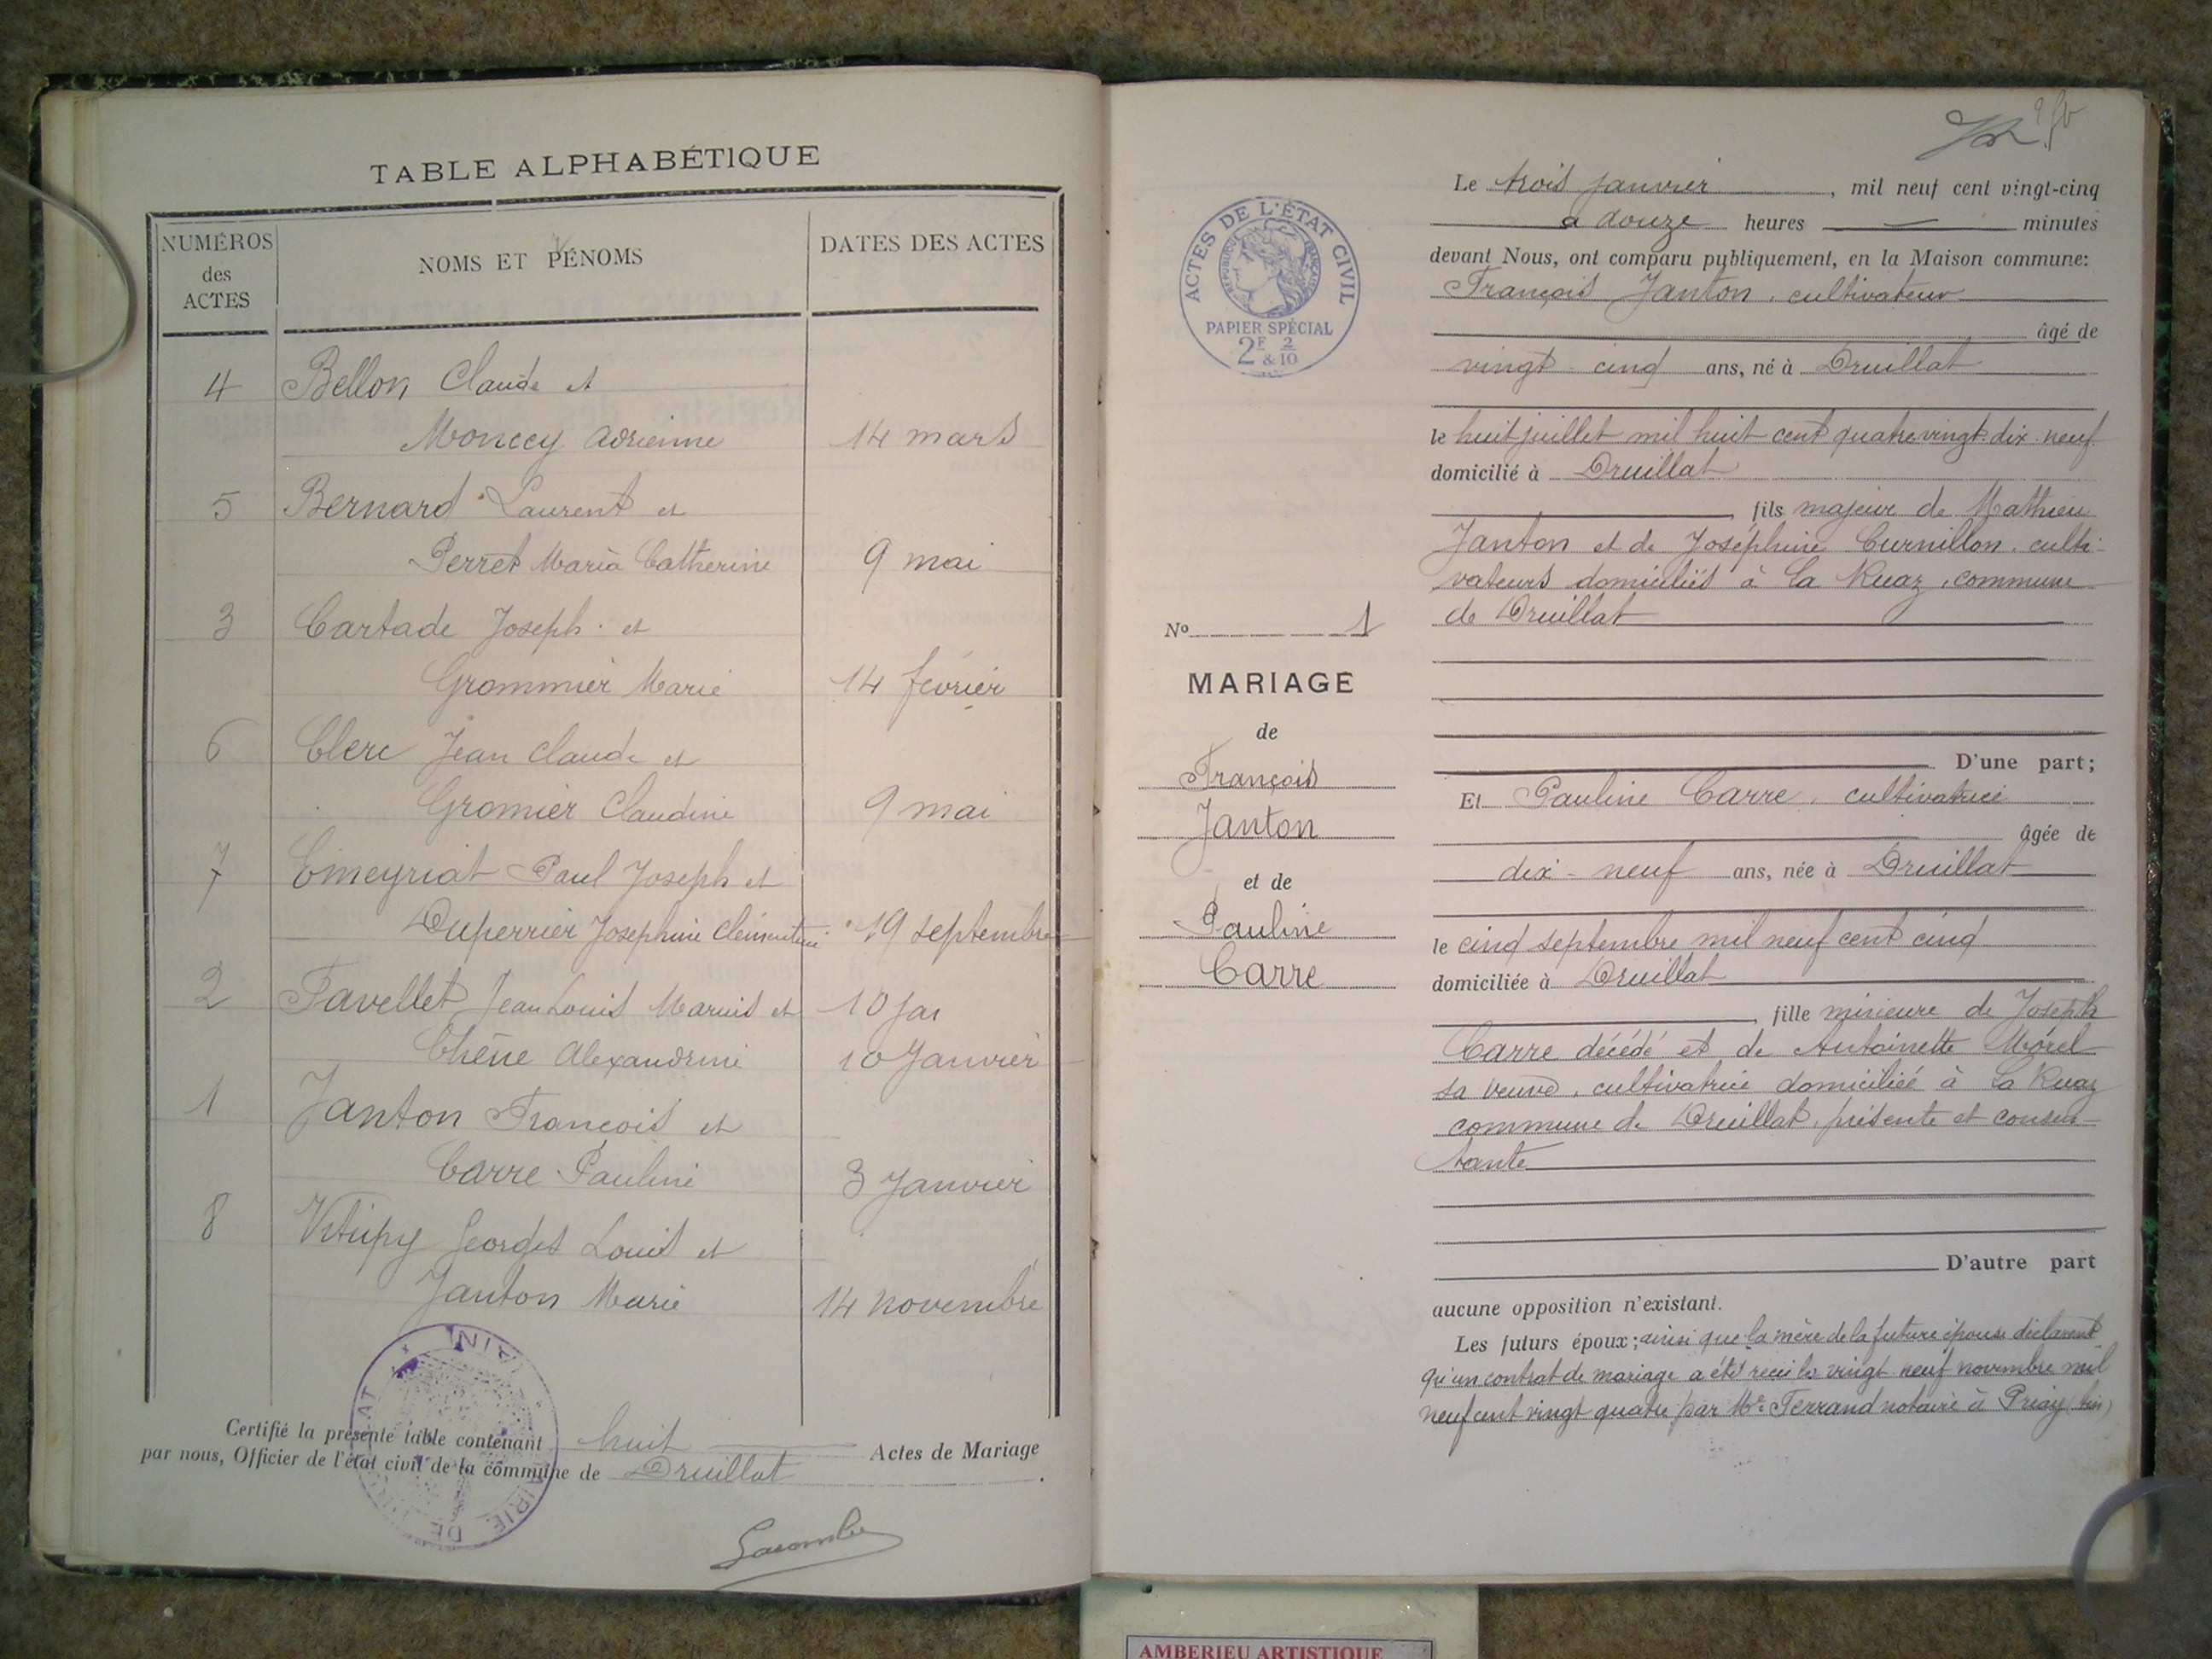 TABLE ALPHABÉTIQUE
NUMÉROS des ACTES
NOMS ET PÉNOMS
DATES DES ACTES
4 Bellon Claude et
Moncey Adrienne 14 mars
5 Bernard Laurent et
Perret Maria Catherine 9 mai
3 Cartade Joseph et
Grommier Marie 14 février
6 Clerc Jean Claude et
Gromier Claudine 9 mai
7 Emeyriat Paul Joseph et
Duperrier Josephine Clémentine 19 septembre
2 Favellet Jean Louis Marius et 10 Jan
Chêne Alexandrine 10 Janvier
1 Janton François et
Carre Pauline 3 Janvier
8 Georges Louis et
Janton Marie 14 novembre
Certifié la présente table contenant huit Actes de Mariage
par nous, Officier de l'état civil de la commune de Druillat.
MAIRIE DE DRUILLAT AIN
Lacombe
ACTES DE L'ÉTAT CIVIL
RÉPUBLIQUE FRANÇAISE
PAPIER SPÉCIAL
2F & 2/10
No 1
MARIAGE
de
François
Janton
et de
Pauline
Carre
Le trois janvier, mil neuf cent vingt-cinq
a douze heures — minutes
devant Nous, ont comparu publiquement, en la Maison commune:
François Janton, cultivateur
âgé de
vingt cinq ans, né à Druillat
le huit juillet mil huit cent quatre vingt dix neuf
domicilié à Druillat
, fils majeur de Mathieu
Janton et de Joséphine Curnillon, culti-
vateurs domiciliés à La Ruaz, commune
de Druillat
D'une part;
Et Pauline Carre, cultivatrice
âgée de
dix-neuf ans, née à Druillat
le cinq septembre mil neuf cent cinq
domiciliée à Druillat
, fille mineure de Joseph
Carre décédé et de Antoinette Morel
sa veuve, cultivatrice domiciliée à La Ruaz
commune de Druillat, présente et consen-
tante
D'autre part
aucune opposition n'existant.
Les futurs époux; ainsi que la mère de la future épouse déclarent
qu'un contrat de mariage a été reçu le vingt neuf novembre mil
neuf cent vingt quatre par Me Ferrand notaire à Priay (Ain)
AMBERIEU ARTISTIQUE